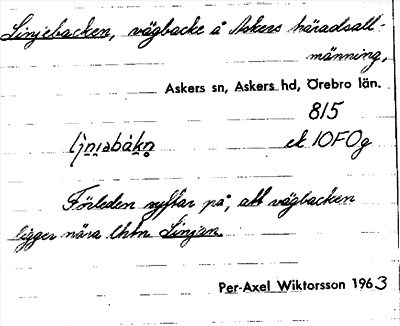 Linjebacken, vägbacke å Askers häradsall-
männing,
Askers sn, Askers hd, Örebro län.
815
ek 10F0g
Förleden syftar på, att vägbacken
ligger nära lhtn Linjan.
Per-Axel Wiktorsson 1963